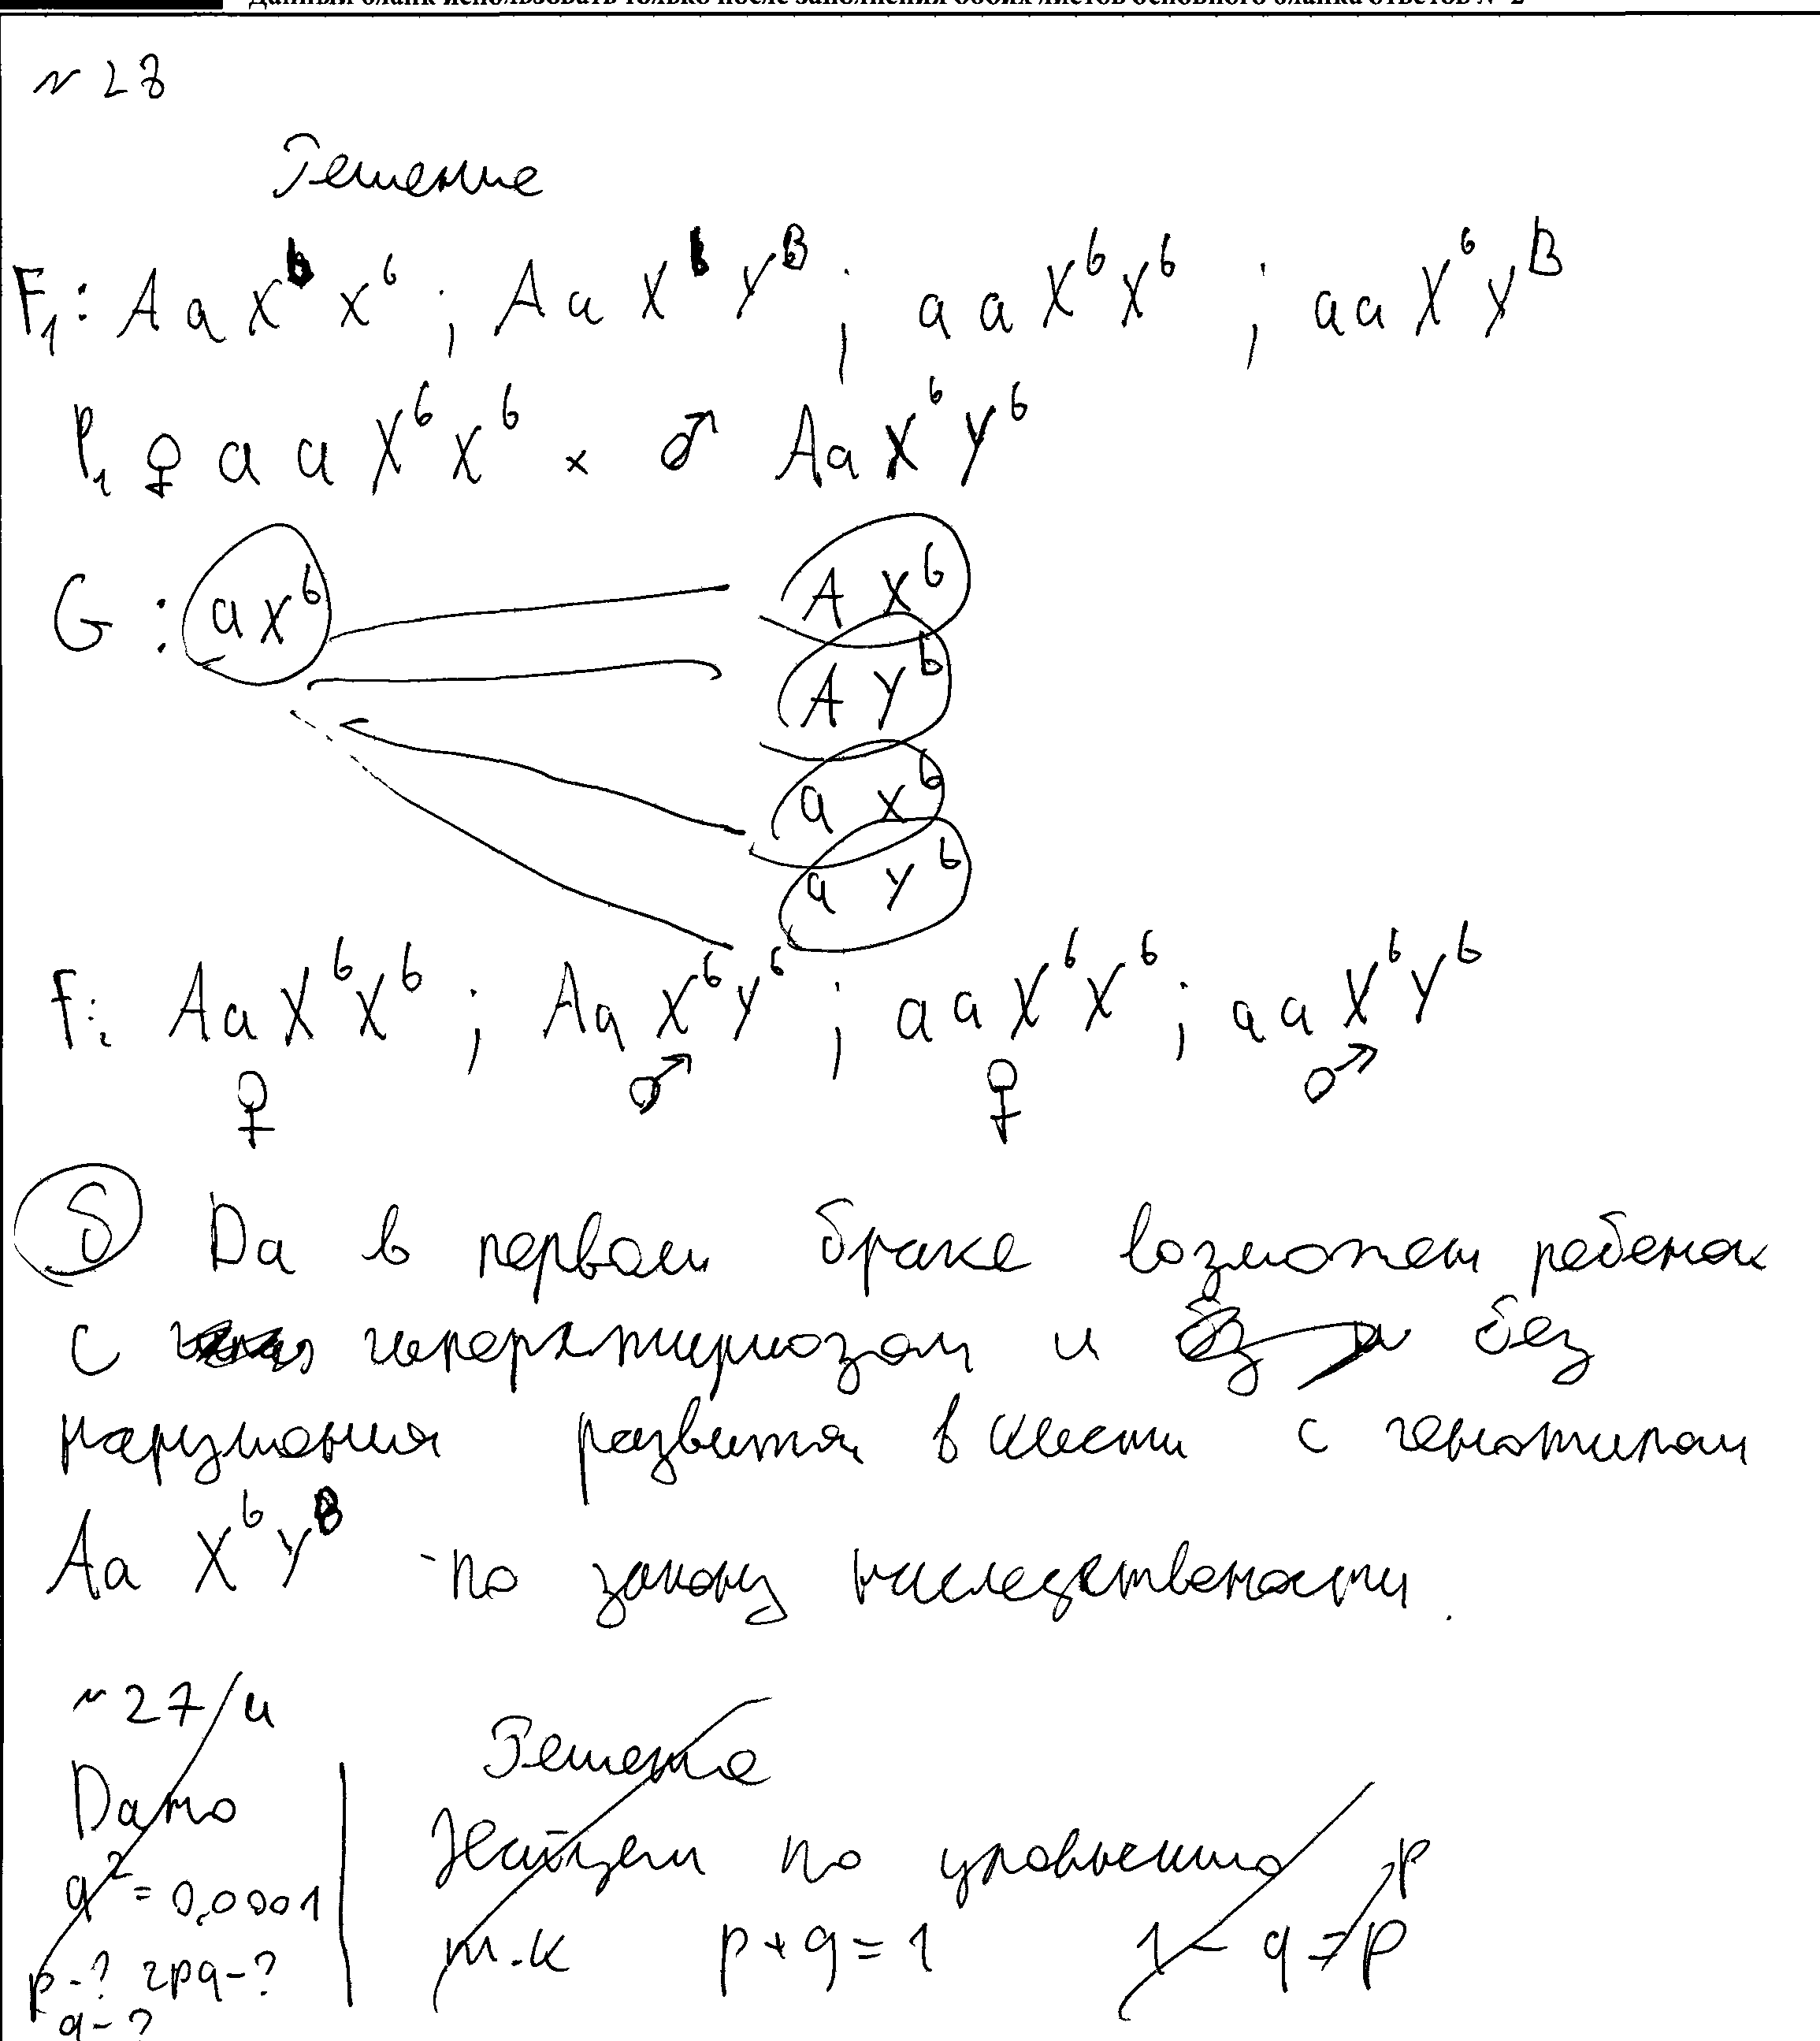 Данный бланк использовать только после заполнения обоих листов основного бланка ответов № 2
№ 28
Решение
F₁: Aa Xᵇ Xᵇ ; Aa Xᵇ Yᴮ ; aa Xᵇ Xᵇ ; aa Xᵇ Yᴮ
P₁ ♀ aa Xᵇ Xᵇ × ♂ Aa Xᵇ Yᵇ
G : aXᵇ AXᵇ
AYᵇ
aXᵇ
aYᵇ
F₂: Aa XᵇXᵇ ; Aa XᵇYᵇ ; aa XᵇXᵇ ; aa XᵇYᵇ
♀ ♂ ♀ ♂
б Да в первом браке возможен ребенок
с гипертириозом и без
нарушения развития в кисти с генотипом
Aa XᵇYᴮ - по закону наследственности.
№ 27/и
Дано
q² = 0,0001
p - ? 2pq - ?
q - ?
Решение
Найдем по уровнению
т.к p + q = 1 1 - q = p
p